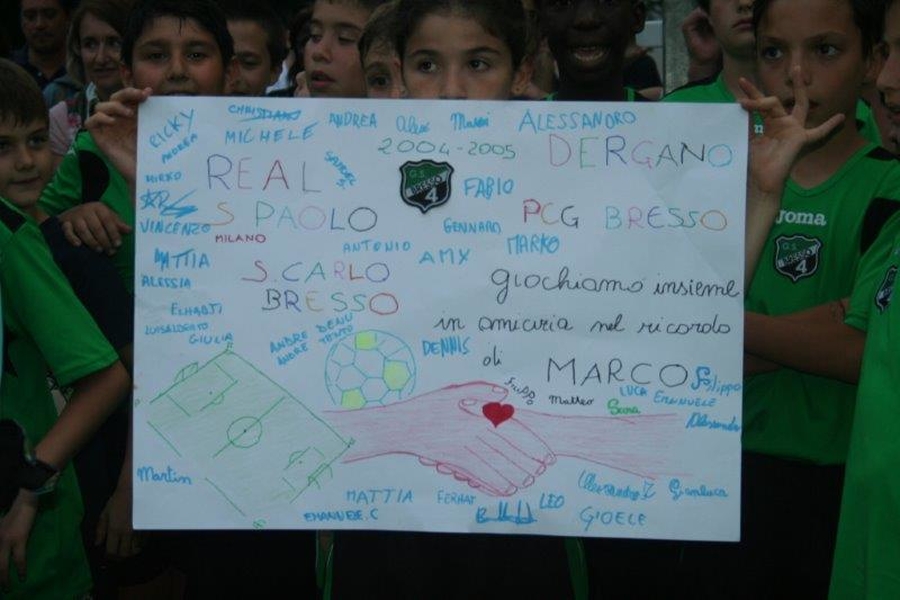 RICKY
ANDREA
MICHELE
ANDREA
Alex
ALESSANDRO
2004-2005
DERGANO
REAL
SAMUEL
G.S.
BRESSO
4
FABIO
MIRKO
S PAOLO
PCG BRESSO
VINCENZO
MILANO
GENNARO
ANTONIO
AMX
MARKO
MATTIA
S.CARLO
ALESSIA
BRESSO
giochiamo insieme
in amicizia nel ricordo
di MARCO
ELHADJI
GIULIA
DENNIS
Filippo
LUCA
EMANUELE
Matteo
Sara
Alessandro
Martin
MATTIA
FERHAT
LEO
EMANUELE.C
GIOELE
Alessandro
Gianluca
Joma
G.S.
BRESSO
4